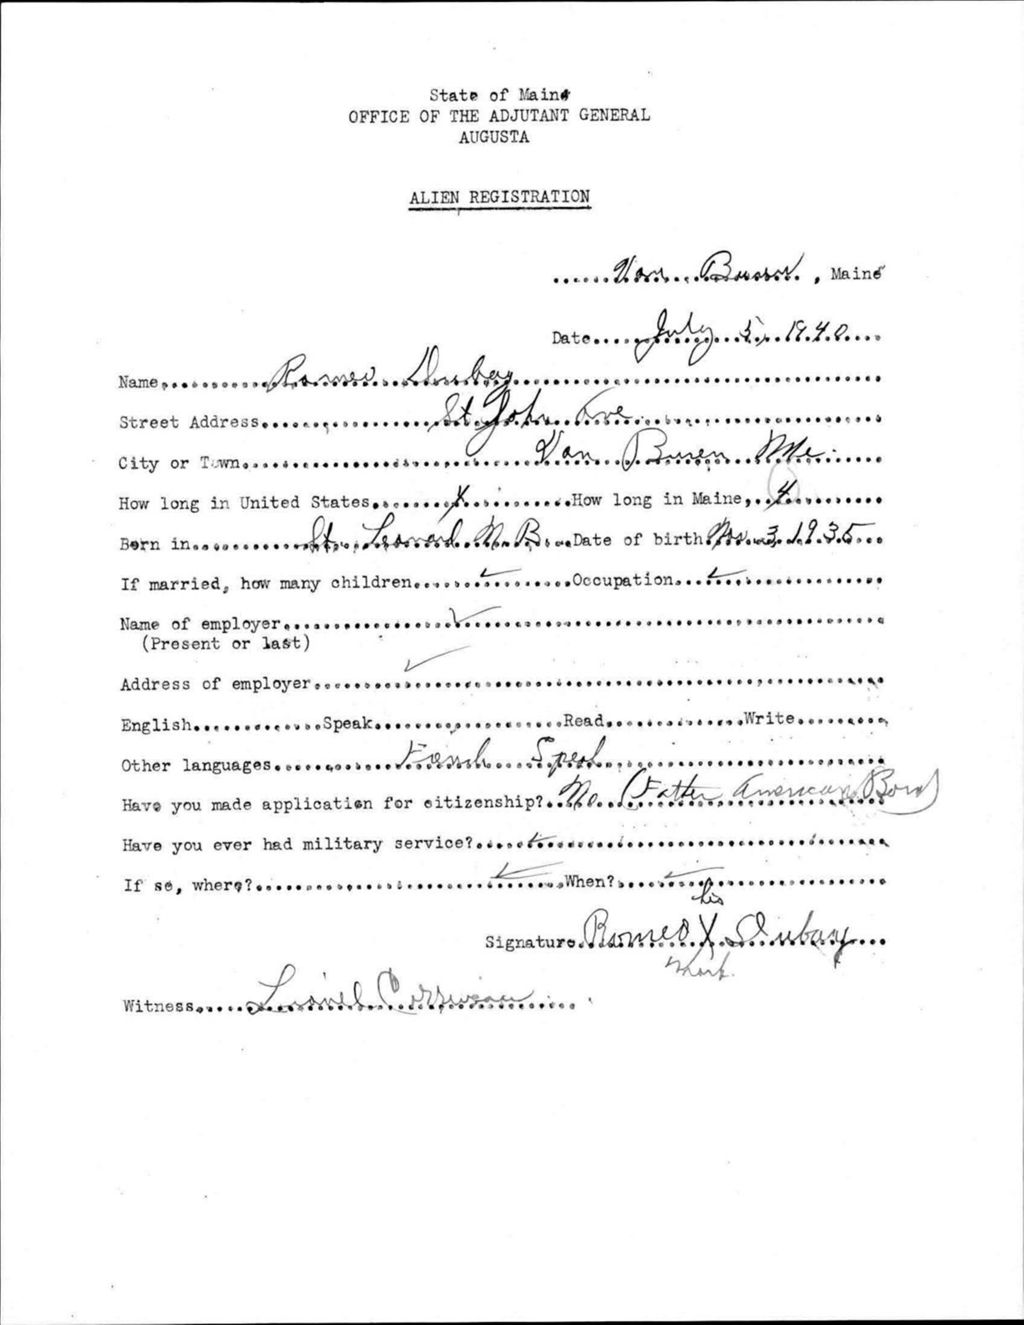 State of Maine
OFFICE OF THE ADJUTANT GENERAL
AUGUSTA
ALIEN REGISTRATION
Van Buren, Maine
Date July 5, 1940
Name Romeo Dubay
Street Address St. John Ave.
City or Town Van Buren Me.
How long in United States How long in Maine, 4
Born in St. Leonard N.B. Date of birth Nov. 3, 1935
If married, how many children Occupation
Name of employer
(Present or last)
Address of employer
English Speak Read Write
Other languages French Speak
Have you made application for citizenship? No (Father American Born)
Have you ever had military service?
If so, where? When?
his
Signature Romeo X Dubay
mark.
Witness Lionel